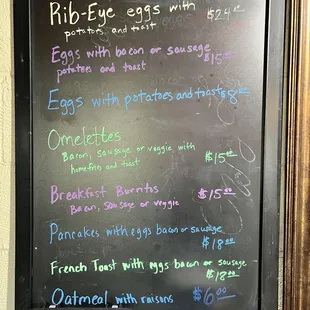 Rib-Eye eggs with $24.00
potatoes and toast
Eggs with bacon or sausage
potatoes and toast $15.00
Eggs with potatoes and toast $8.00
Omelettes
Bacon, sausage or veggie with $15.00
homefries and toast
Breakfast Burritos $15.00
Bacon, Sausage or veggie
Pancakes with eggs bacon or sausage
$18.00
French Toast with eggs bacon or sausage
$18.00
Oatmeal with raisons $6.00